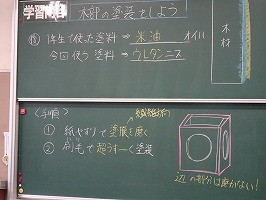 学習
木材の塗装をしよう
1年生で使った塗料 ⇒ 米油 オイル
今回使う塗料 ⇒ ウレタンニス
木材
〈手順〉
繊維方向
① 紙やすりで塗膜を磨く
② 刷毛で超うすーく塗装
辺の部分は磨かない!